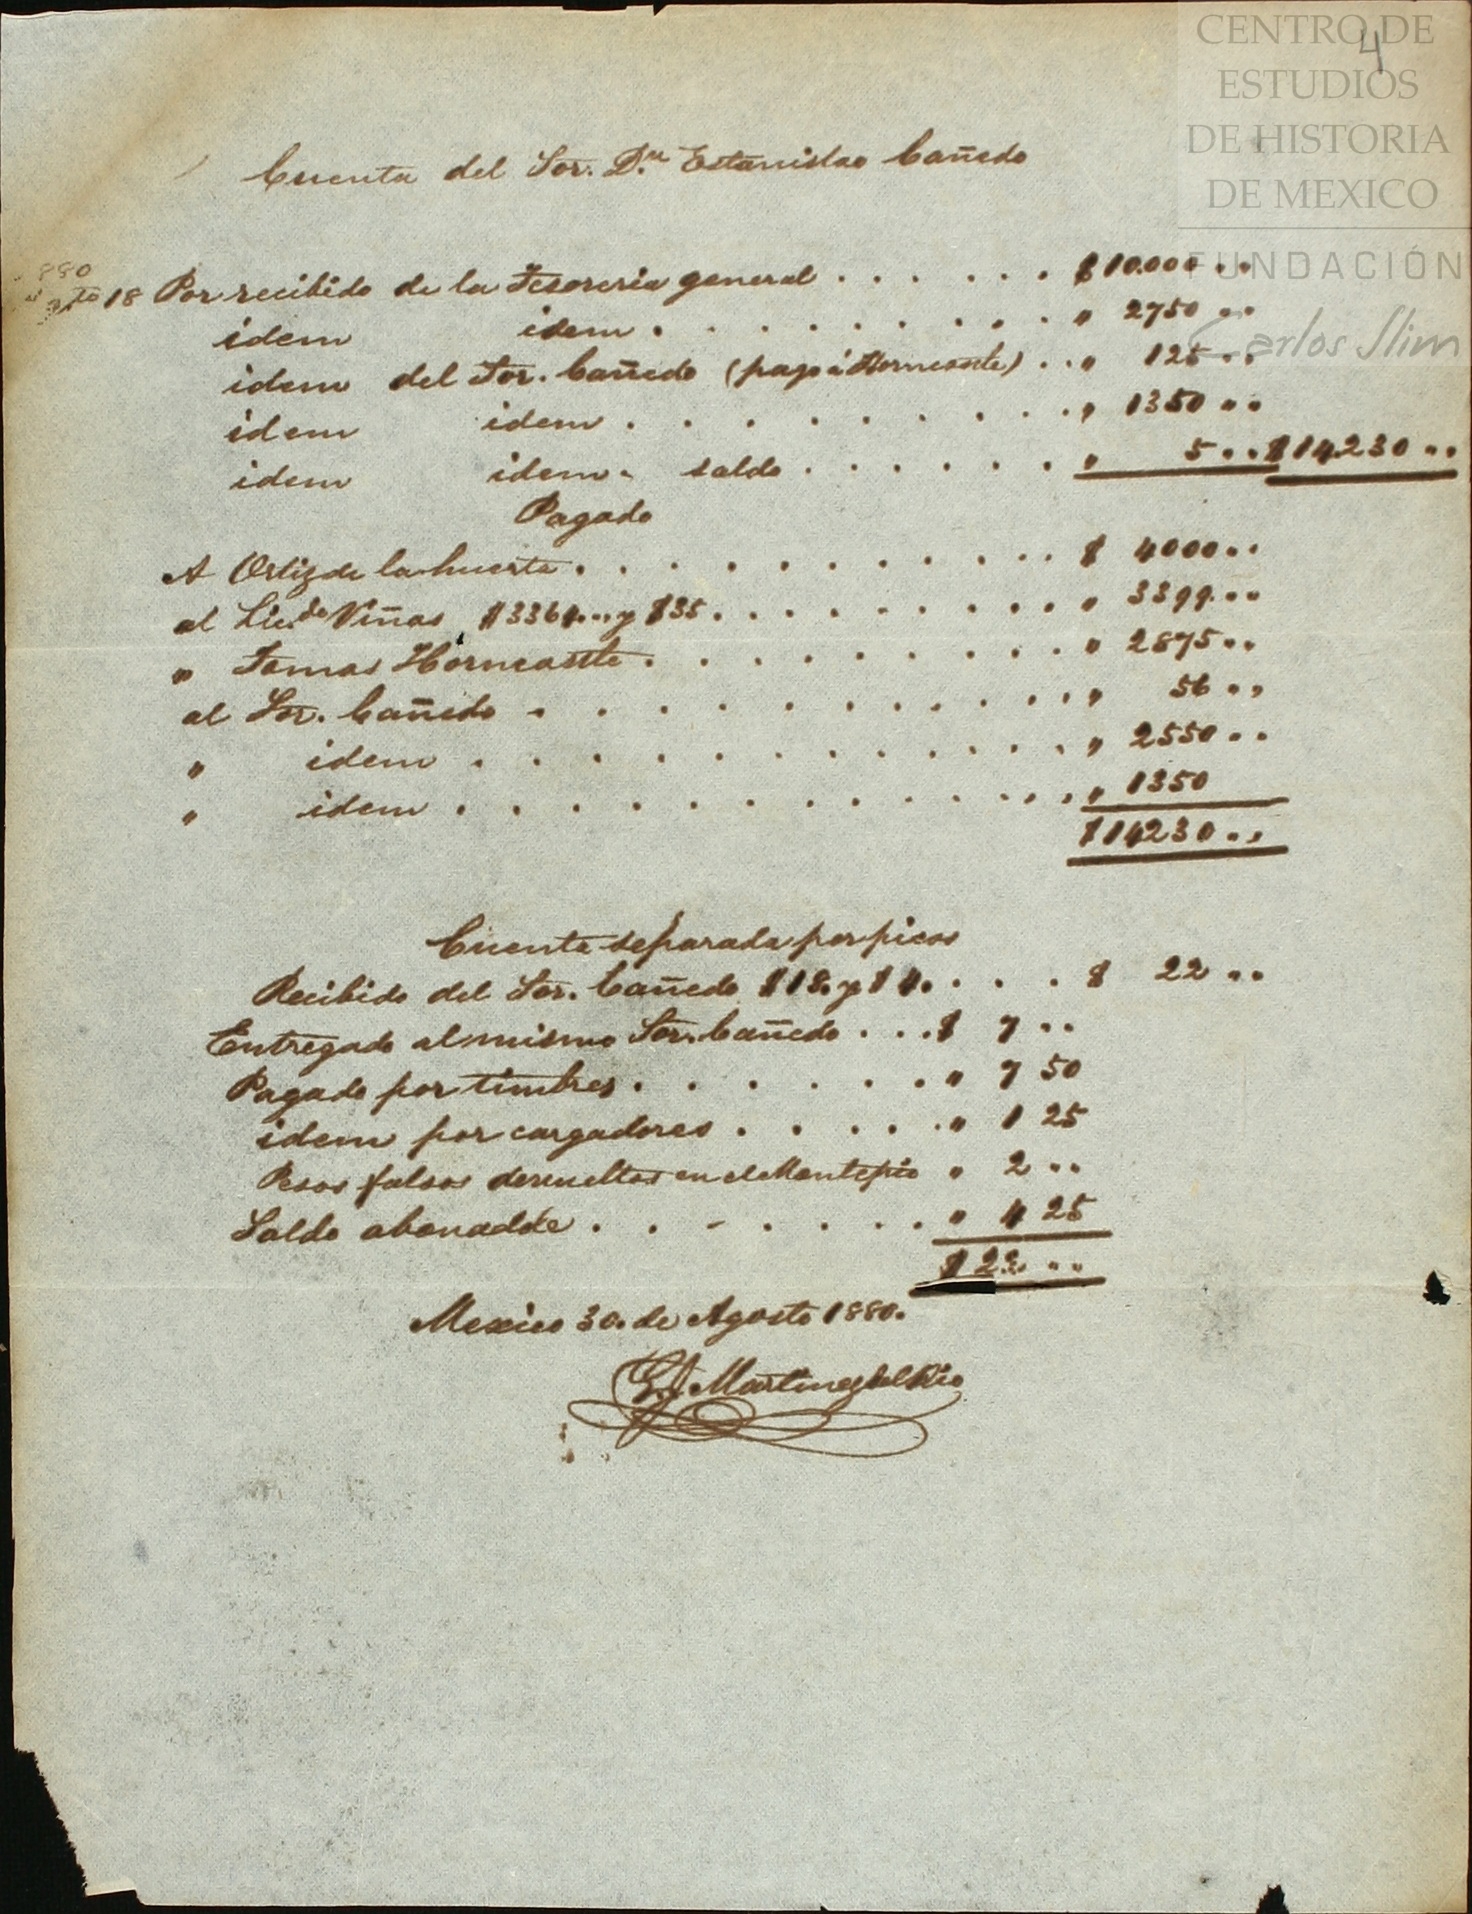 CENTRO DE
ESTUDIOS
DE HISTORIA
DE MEXICO
FUNDACIÓN
Carlos Slim
4
Cuenta del Sor. D.n Estanislao Cañedo
880
18 Por recibido de la Tesoreria general . . . . . . $ 10.000 "
idem idem . . . . . . . . " 2750 "
idem del Sor. Cañedo (pago á Horncastle) . . " 125 "
idem idem . . . . . . . . " 1350 "
idem idem - saldo . . . . . . " 5 " $ 14.230 "
Pagado
A Ortiz de la huerta . . . . . . . . . . $ 4000 "
al Lic.do Viñas $ 3364 " y $ 35 . . . . . . . . " 3399 "
" Tomas Horncastle . . . . . . . . " 2875 "
al Sor. Cañedo . . . . . . . . . . " 56 "
" idem . . . . . . . . . . . " 2550 "
" idem . . . . . . . . . . . . " 1350
$ 14230 "
Cuenta separada por picos
Recibido del Sor. Cañedo $ 18. y $ 4. . . . $ 22 "
Entregado al mismo Sor. Cañedo . . . $ 7 "
Pagado por timbres . . . . . . " 7 50
idem por cargadores . . . . . " 1 25
Pesos falsos devueltos en el Montepio " 2 "
Saldo abonado . . - . . . . " 4 25
$ 22 "
Mexico 30. de Agosto 1880.
Martinez del Rio